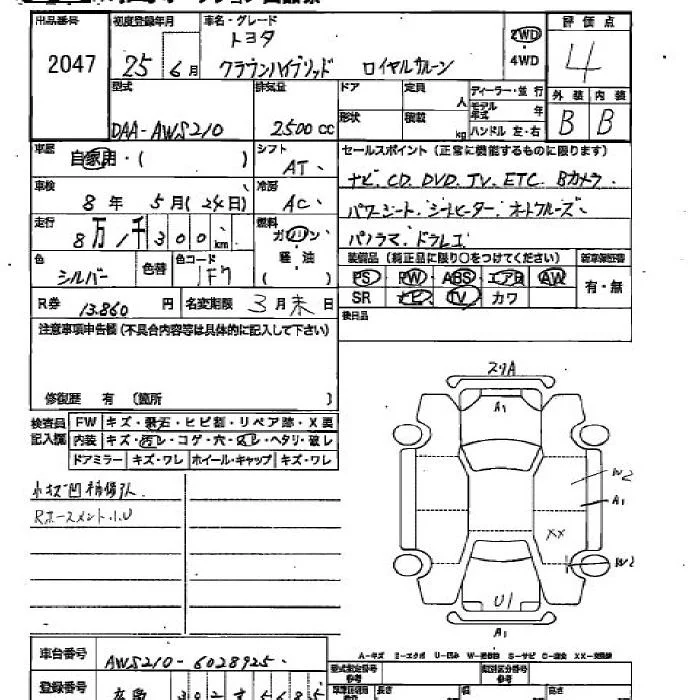 出品番号 初度登録年月 車名・グレード 評価点
2047 25 6月 トヨタ 2WD 4
クラウンハイブリッド ロイヤルサルーン 4WD
型式 排気量 ドア 定員 人 ディーラー・並行 外装 内装
DAA-AWS210 2500cc 形状 積載 kg モデル年式 年 B B
ハンドル 左・右
車歴 自家用・( ) シフト AT セールスポイント (正常に機能するものに限ります)
車検 8年 5月(24日) 冷房 AC ナビ. CD. DVD. TV. ETC. Bカメラ.
走行 8万1千300km 燃料 ガソリン・軽油 ( ) パワーシート. シートヒーター. オートクルーズ.
パノラマ. ドラレコ
色 シルバー 色替 色コード 1F7 装備品 (純正品に限り○をつけてください) 新車保証書
PS PW ABS エアB AW 有・無
R券 13.860円 名変期限 3月末日 SR ナビ TV カワ
後日品
注意事項申告欄(不具合内容等は具体的に記入して下さい)
修復歴 有 (箇所 )
検査員記入欄 FW キズ・飛石・ヒビ割・リペア跡・X要
内装 キズ・汚レ・コゲ・穴・ヘタリ・破レ
ドアミラー キズ・ワレ ホイール・キャップ キズ・ワレ
A1
W2
A1
XX
W2
U1
A1
A-キズ U-凹み
車台番号 AWS210-6028925
型式指定番号 参考 類別区分番号 参考
登録番号
長さ 幅 高さ